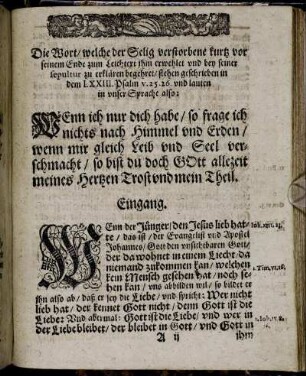 Die Wort/ welche der Selig verstorbene kurtz vor
seinem Ende zum Leichtext ihm erwehlet vnd bey seiner
sepultur zu erklären begehret/ stehen geschrieben in
dem LXXIII. Psalm v. 25. 26. vnd lauten
in vnser Sprache also:
WEnn ich nur dich habe/ so frage ich
nichts nach Himmel vnd Erden/
wenn mir gleich Leib vnd Seel ver-
schmacht/ so bist du doch GOtt allezeit
meines Hertzen Trost vnd mein Theil.
Eingang.
WEnn der Jünger/ den Jesus lieb hat-
te/ das ist/ der Evangelist vnd Apostel
Johannes/ Gott den vnsichtbaren Gott/
der da wohnet in einem Liecht/ da
niemand zukommen kan/ welchen
kein Mensch gesehen hat/ noch se-
hen kan/ vns abbilden wil/ so bildet er
ihn also ab/ daß er sey die Liebe/ vnd spricht: Wer nicht
lieb hat/ der kennet Gott nicht/ denn Gott ist die
Liebe: Vnd abermal: Gott ist die Liebe/ vnd wer in
der Liebe bleibet/ der bleibet in Gott/ vnd Gott in
A ij
ihm